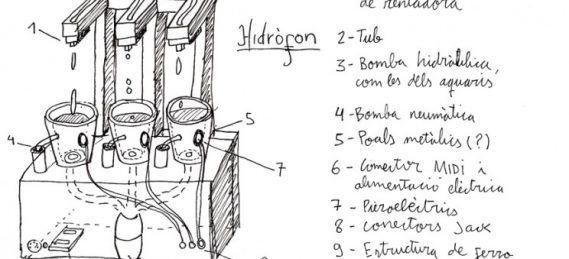 de rentadora
1
Hidròfon
2 - Tub
3 - Bomba hidràulica,
com les dels aquaris
4 - Bomba neumàtica
5 - Poals metàlics (?)
6 - Conector MIDI i
alimentació elèctrica
7 - Piezoelèctrics
8 - conectors Jack
9 - Estructura de ferro
4
5
7